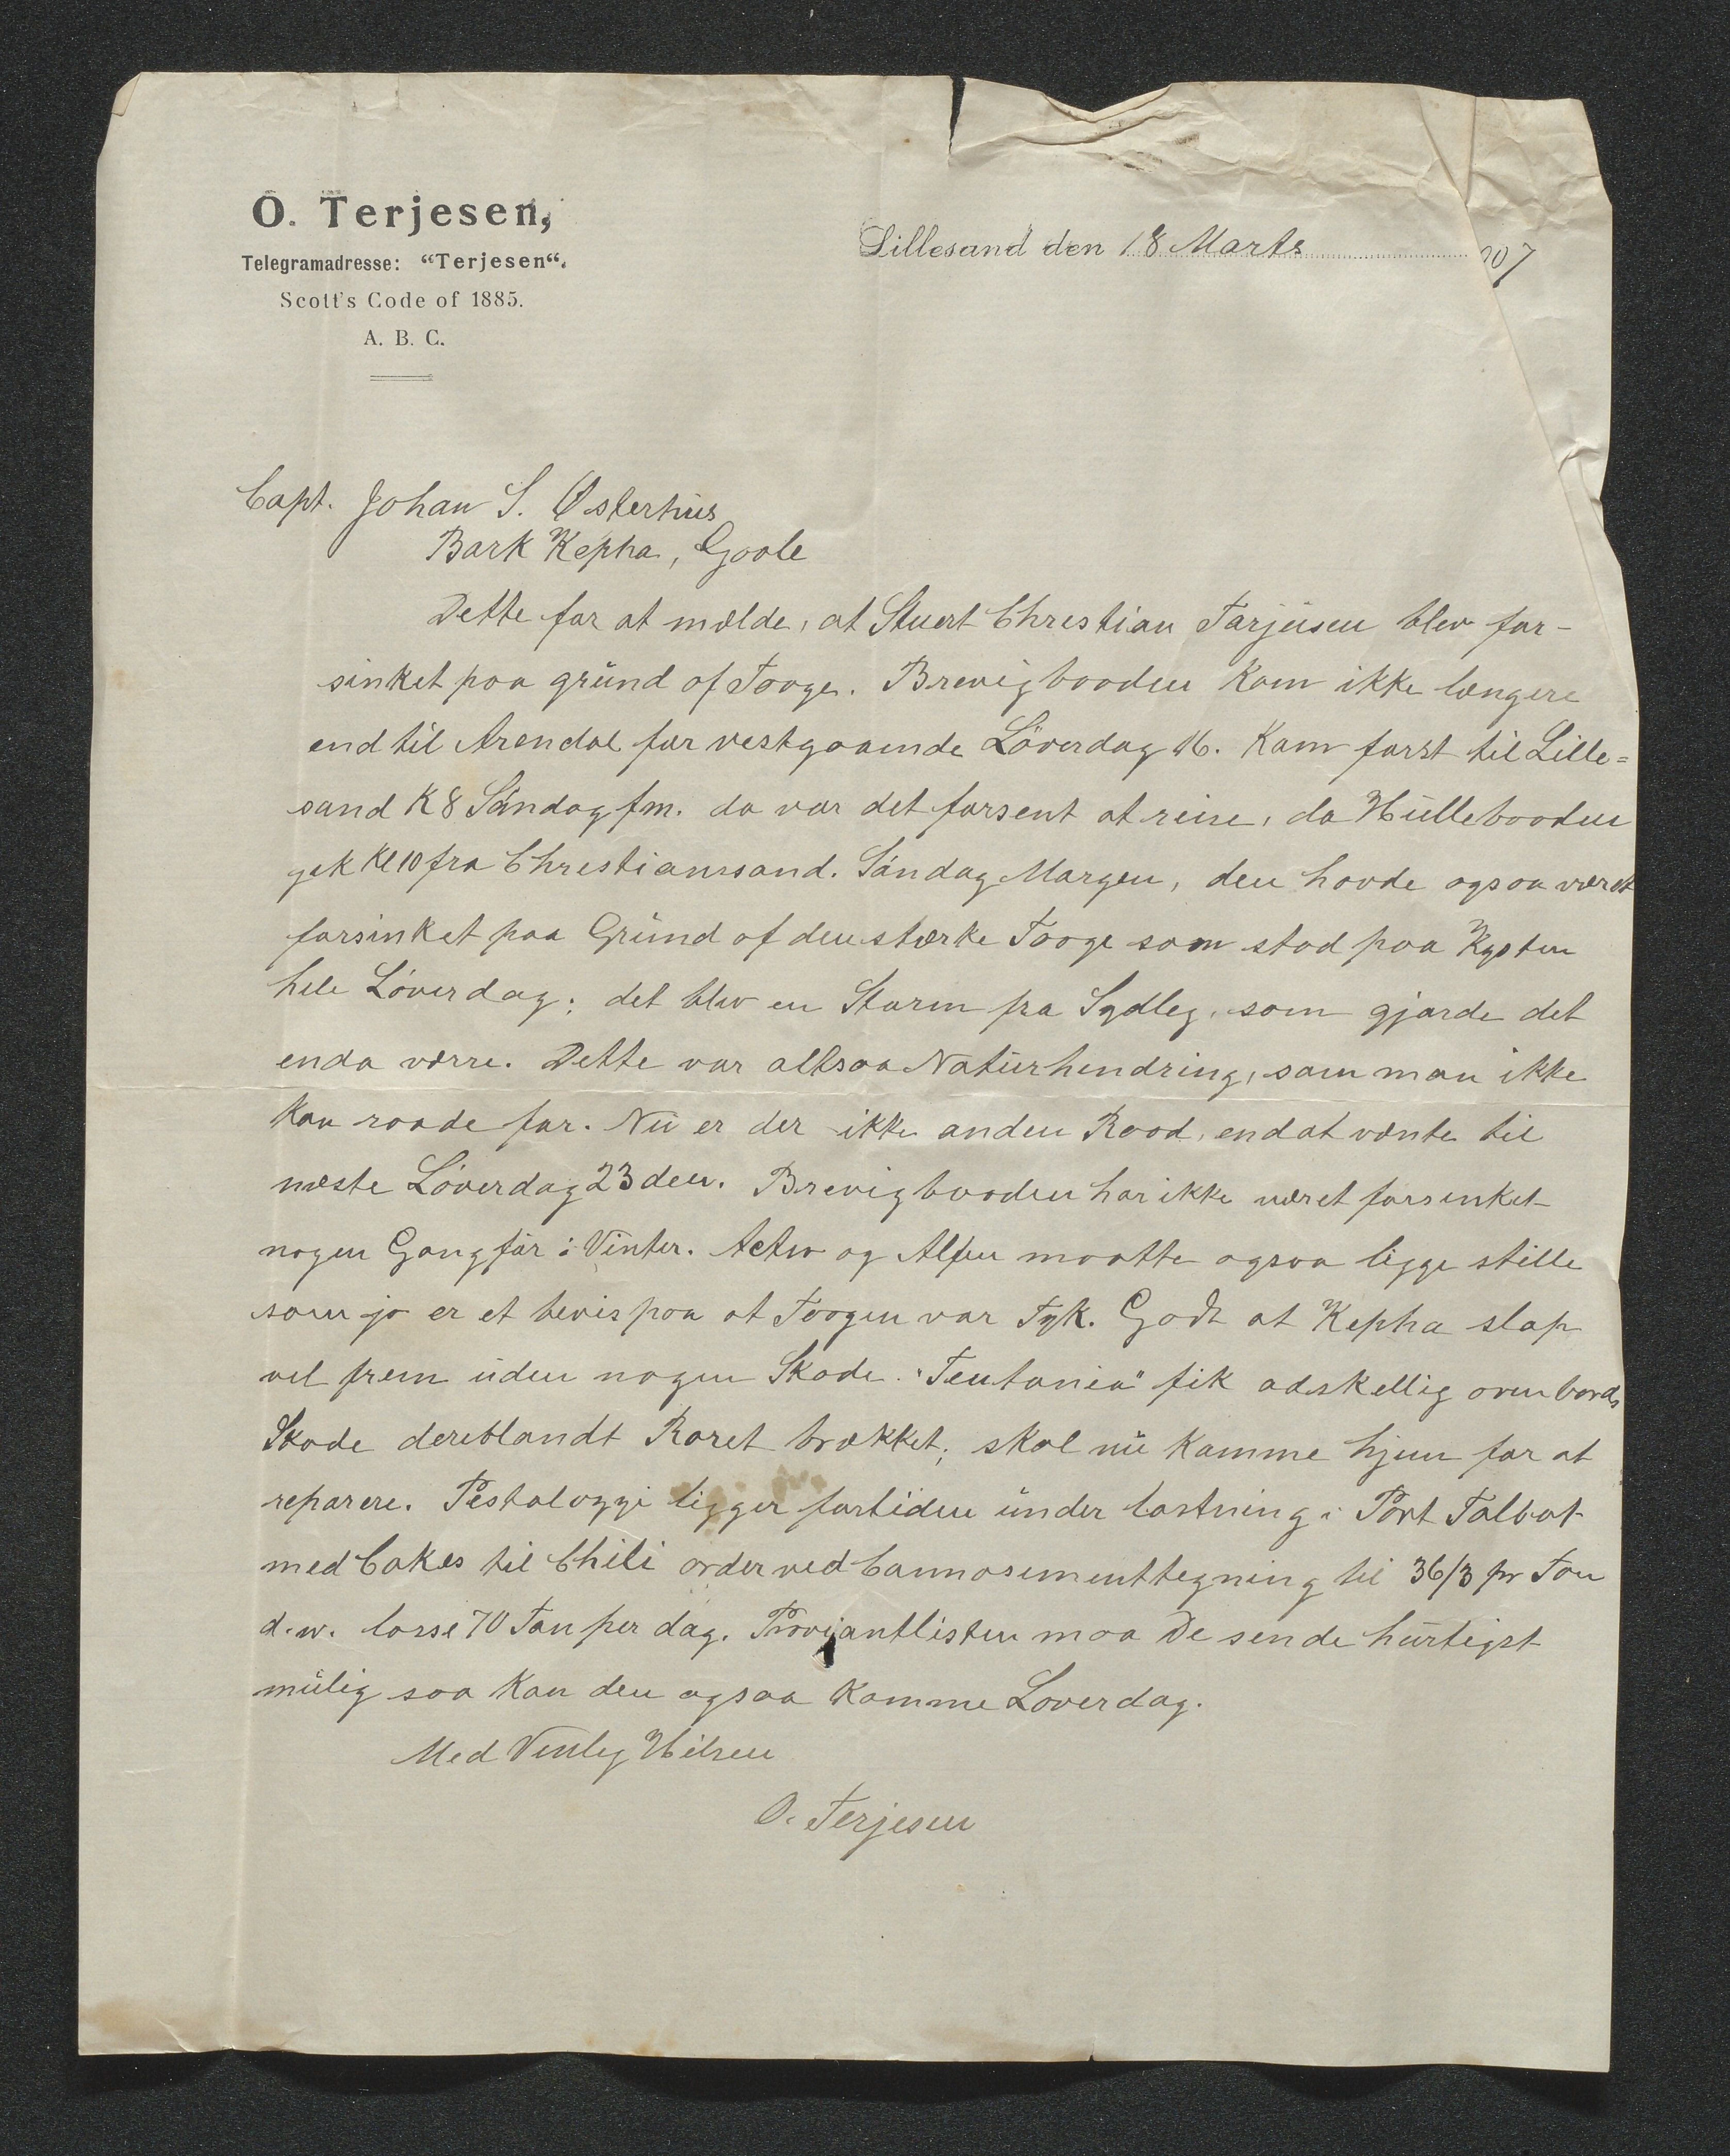 O. Terjesen,
Telegramadresse: “Terjesen“.
Scott's Code of 1885.
A. B. C.
Lillesand den 18 Marts 07
Capt. Johan S. Østerhus
Bark Kepha, Goole
Dette for at mælde, at Stuert Christian Tarjeisen blev for-
sinket paa grund af Taage. Brevigbaaden kom ikke længere
end til Arendal for vestgaaende Löverdag 16. Kom først til Lille=
sand K 8 Söndag fm. da var det forsent at reise, da Hullebaaden
gik Kl 10 fra Christianssand. Söndag Morgen, den havde ogsaa været
forsinket paa Grund af den stærke Taage som stod paa Kysten
hele Löverdag; det blev en Storm fra Sydleg, som gjorde det
enda værre. Dette var altsaa Naturhendring, som man ikke
kan raade for. Nu er der ikke anden Raad, end at vænte til
næste Löverdag 23 den. Brevigbaaden har ikke været forsinket
nogen Gang för i Vinter. Activ og Alfen maatte ogsaa ligge stille
som jo er et bevis paa at Taagen var Tyk. Godt at Kepha slap
vel frem uden nogen Skade. "Teutonia" fik adskellig ovenbords
Skade dereblandt Roret brækket; skal nu komme hjem for at
reparere. Pestalozzi ligger fortiden under lastning i Port Talbot
med Cokes til Chili order ved Connosementtegning til 36/3 pr Ton
d.w. losse 70 Ton per dag. Proviantlisten maa De sende hurtigst
mulig saa kan den ogsaa komme Loverdag.
Med Venlig Hilsen
O. Terjesen